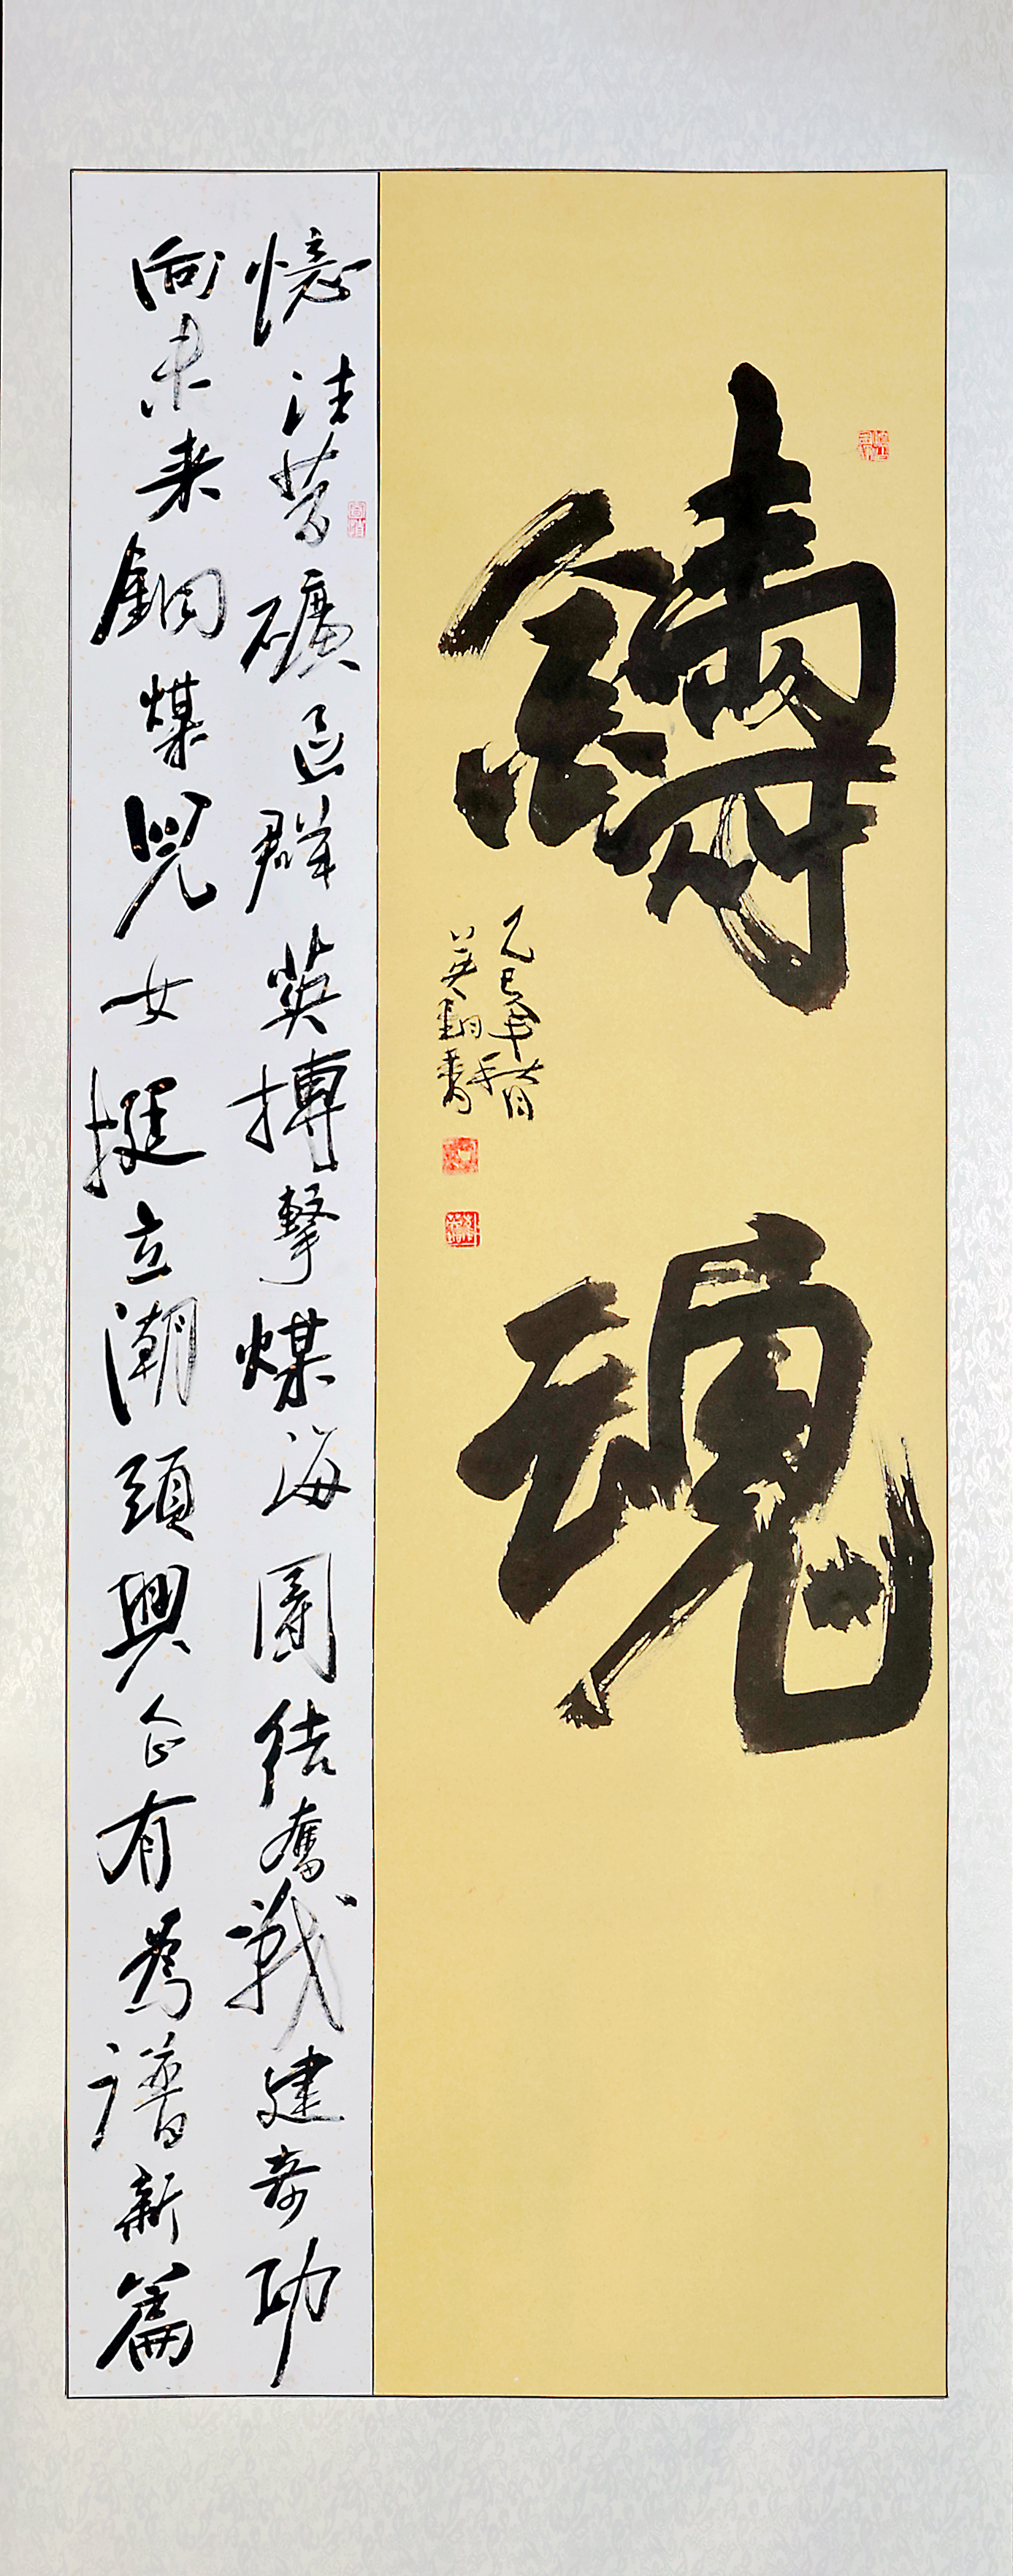 鑄魂
乙巳年荷月
英
憶往昔礦區群英搏擊煤海團結奮戰建奇功
向未来鋼煤兒女挺立潮頭興企有為譜新篇